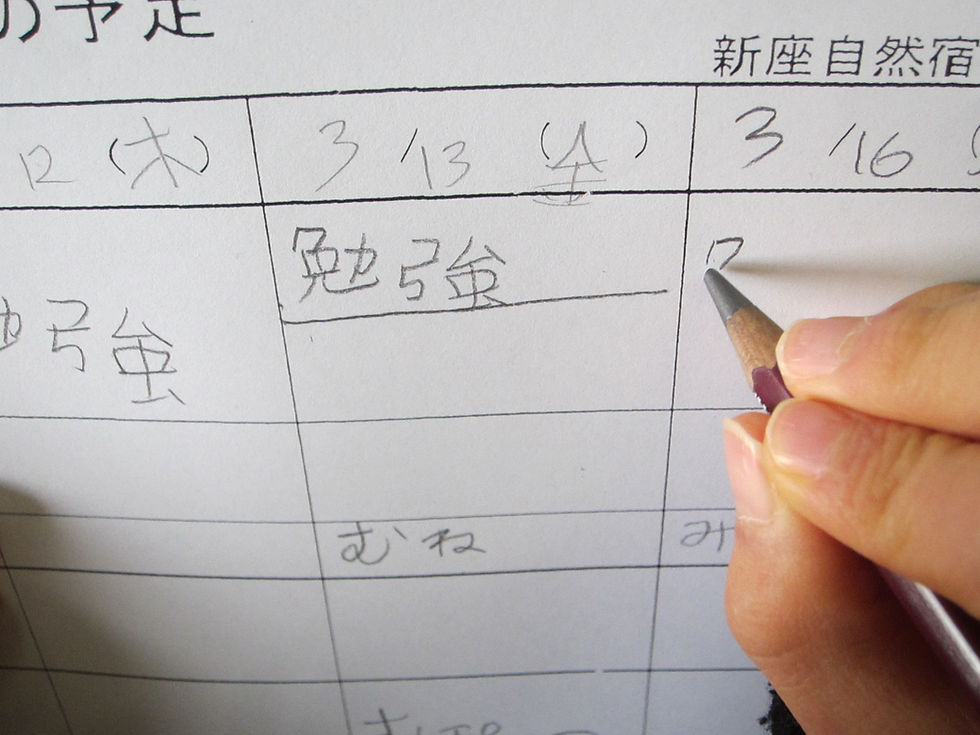 の予定
新座自然宿
12 (木) 3/13 (金) 3/16
勉強 勉強
むね み